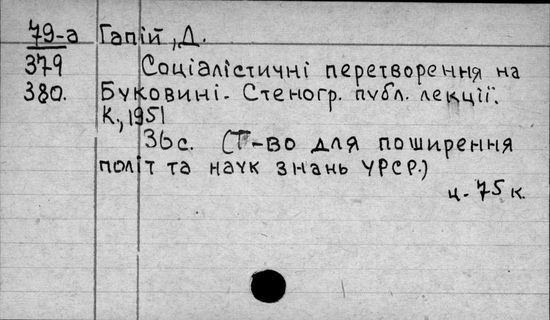 79-а Гапій, Д.
379 Соціалістичні перетворення на
380. Буковині. Стеногр. публ. лекції.
К., 1951
36 с. (Т-во для поширення
політ та наук знань УРСР.)
ц. 75 к.